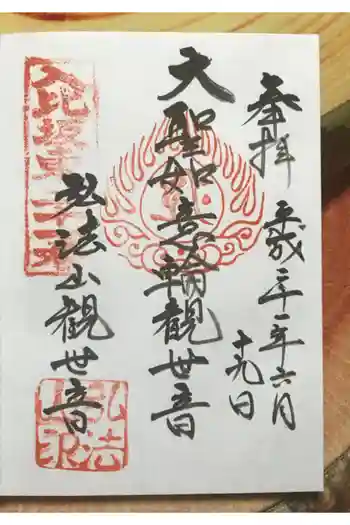 奉拝
平成三十一年六月
十九日
大聖如意輪觀世音
弘法山觀世音
弘法